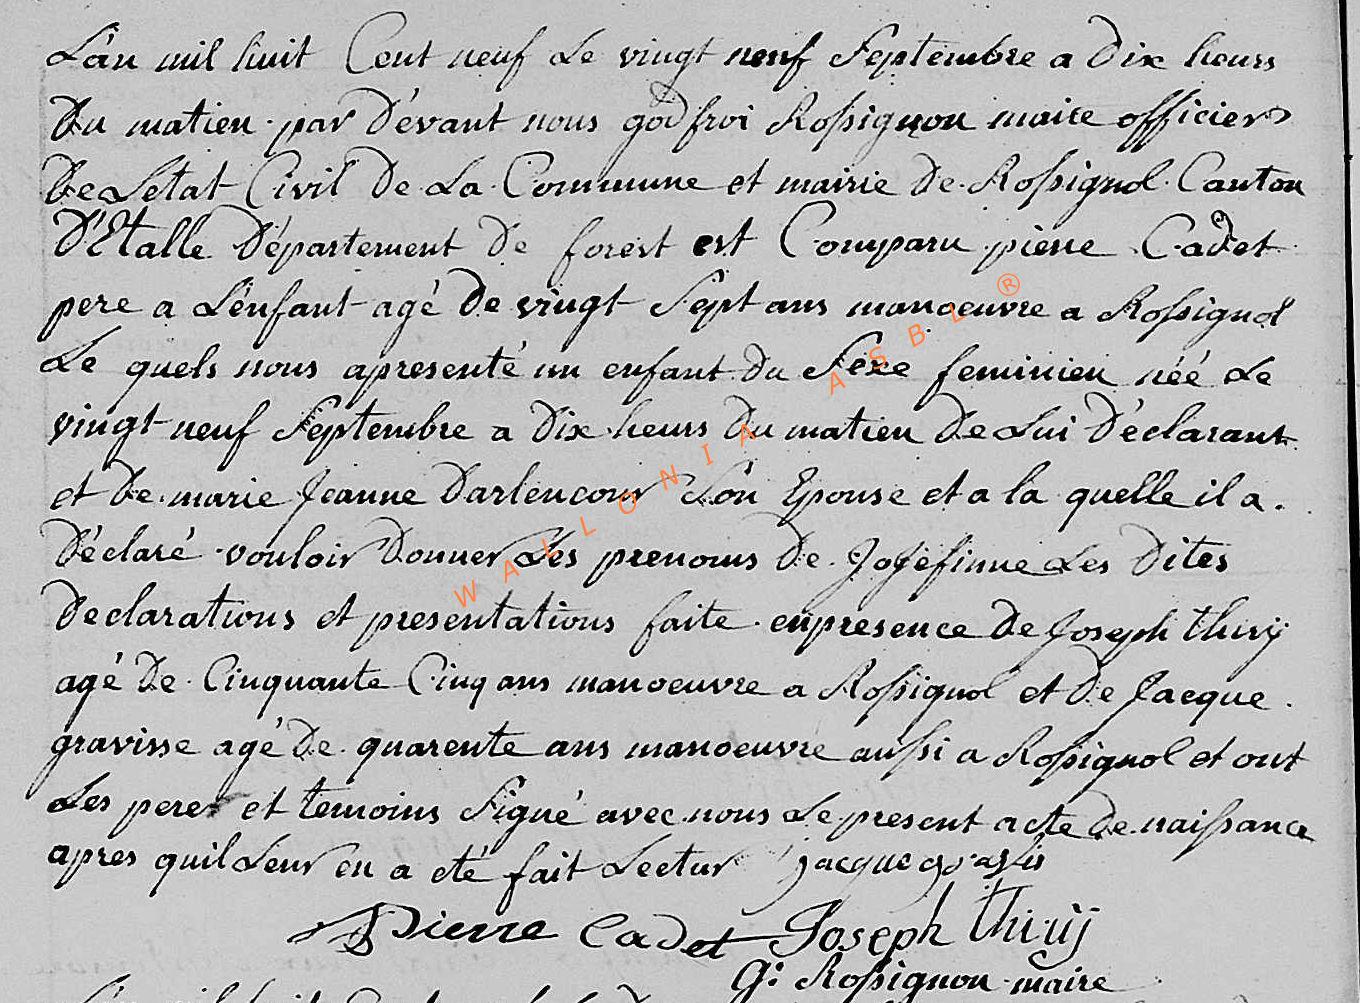 L'an mil huit Cent neuf Le vingt neuf Septembre a Dix heurs
Du matien par D'évant nous godfroi Rossignon maire officiers
De Letat Civil De La Commune et mairie De Rossignol Canton
D'Etalle Département De forest est Comparu pierre Cadet
pere a L'énfant agé De vingt Sept ans manoeuvre a Rossignol
Le quels nous apresenté un enfant Du Sexe feminien néé Le
vingt neuf Septembre a Dix heurs Du matien De Lui Déclarant
et De marie Jeanne Darlencour Son Epouse et a la quelle il a
Déclaré vouloir Donner Les prenoms De Joséfinne Les Dites
Declarations et presentations faite enpresence De Joseph thirÿ
agé De Cinquante Cinq ans manoeuvre a Rossignol et De Jacque
gravisse agé De quarente ans manoeuvre aussi a Rossignol et ont
Les peres et temoins Signé avec nous Le present acte De naissance
apres quil Leur en a eté fait Lectur jacque
Pierre Cadet Joseph thirÿ
G: Rossignon maire
WALLONIA ASBL ®